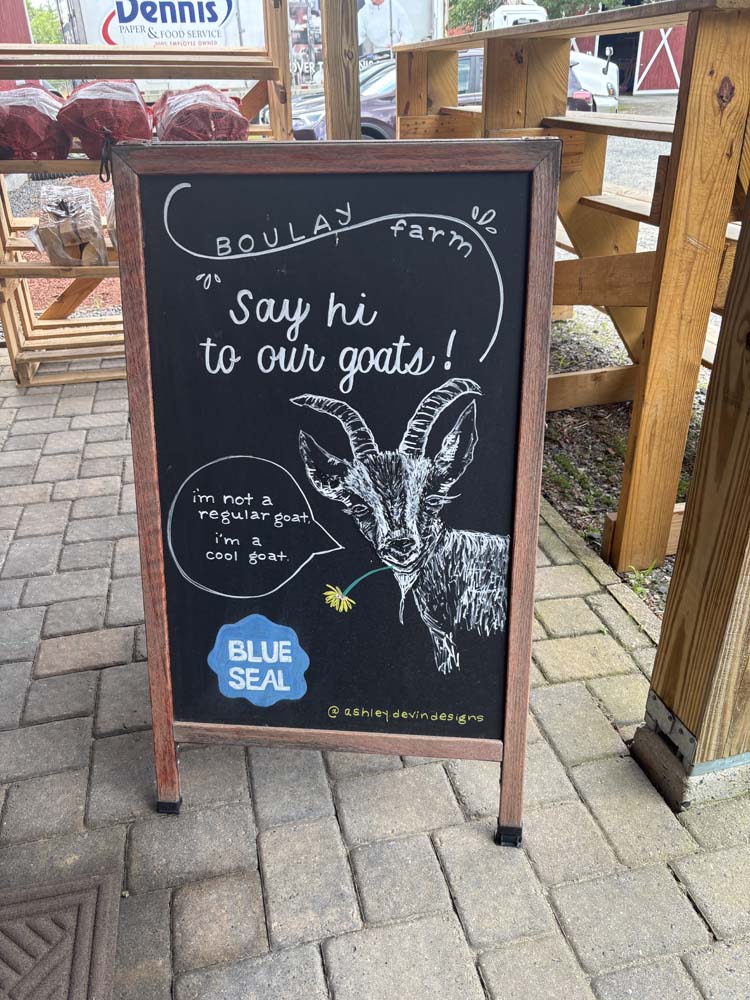 Dennis
PAPER & FOOD SERVICE
100% EMPLOYEE OWNED
BOULAY farm
Say hi
to our goats!
i'm not a
regular goat.
i'm a
cool goat.
BLUE
SEAL
@ashleydevindesigns